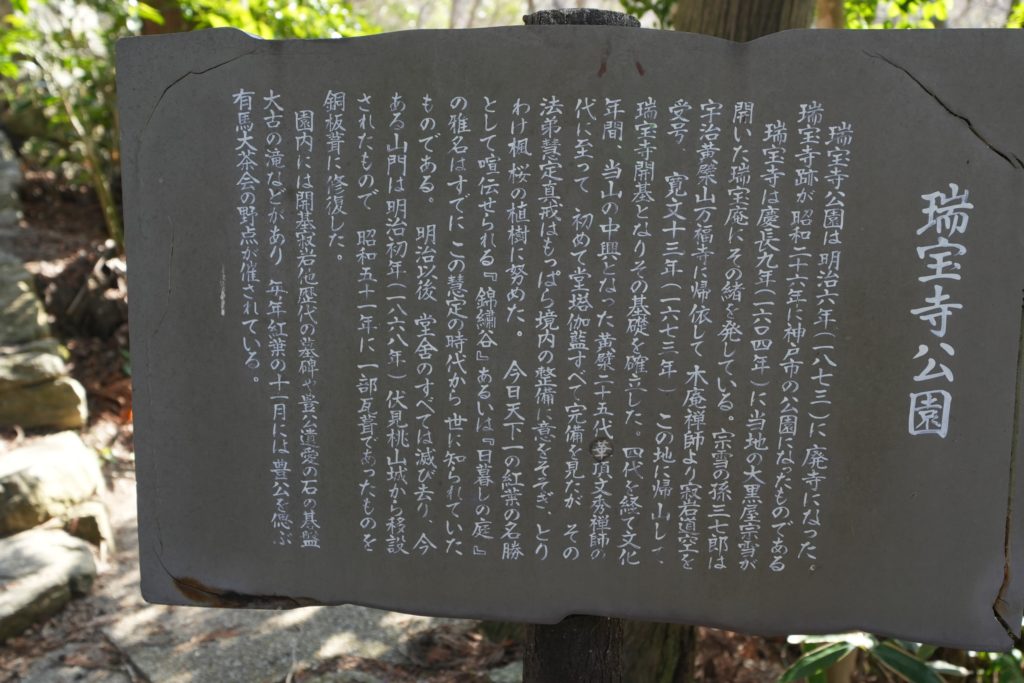 瑞宝寺公園
瑞宝寺公園は明治六年(一八七三)に廃寺になった。
瑞宝寺跡が 昭和二十六年に神戸市の公園になったものである
瑞宝寺は慶長九年(一六〇四年)に当地の大黒屋宗雪が
開いた瑞宝庵にその緒を発している。宗雪の孫三七郎は
宇治黄檗山万福寺に帰依して 木庵禅師より寂岩道空を
受号 寛文十三年(一六七三年) この地に帰山して、
瑞宝寺開基となりその基礎を確立した。四代を経て文化
年間、当山の中興となった黄檗二十五代華頂文秀禅師の
代に至って 初めて堂塔伽藍すべて完備を見たが その
法弟慧定真戒はもっぱら境内の整備に意をそそぎ、とり
わけ楓 桜の植樹に努めた。 今日天下一の紅葉の名勝
として喧伝せられる『錦繍谷』あるいは『日暮しの庭』
の雅名はすでにこの慧定の時代から 世に知られていた
ものである。 明治以後 堂舎のすべては滅び去り、今
ある山門は明治初年(一八六八年)伏見桃山城から移設
されたもので 昭和五十一年に一部瓦葺であったものを
銅板葺に修復した。
園内には開基寂岩他歴代の墓碑や豊公遺愛の石の碁盤
大古の滝などがあり 年年紅葉の十一月には豊公を偲ぶ
有馬大茶会の野点が催されている。